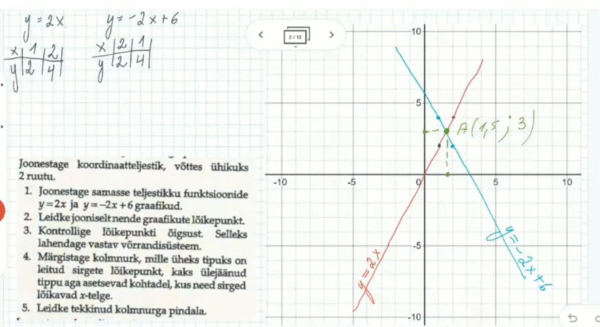 y=2x   y=-2x+6
x|1|2   x|2|1
y|2|4   y|2|4
2 / 12
Joonestage koordinaatteljestik, võttes ühikuks
2 ruutu.
1. Joonestage samasse teljestikku funktsioonide
y=2x ja y=-2x+6 graafikud.
2. Leidke jooniselt nende graafikute lõikepunkt.
3. Kontrollige lõikepunkti õigsust. Selleks
lahendage vastav võrrandisüsteem.
4. Märgistage kolmnurk, mille üheks tipuks on
leitud sirgete lõikepunkt, kaks ülejäänud
tippu aga asetsevad kohtadel, kus need sirged
lõikavad x-telge.
5. Leidke tekkinud kolmnurga pindala.
10
5
A(1,5 ; 3)
-10 -5 0 5 10
-5
-10
y=2x
y=-2x+6